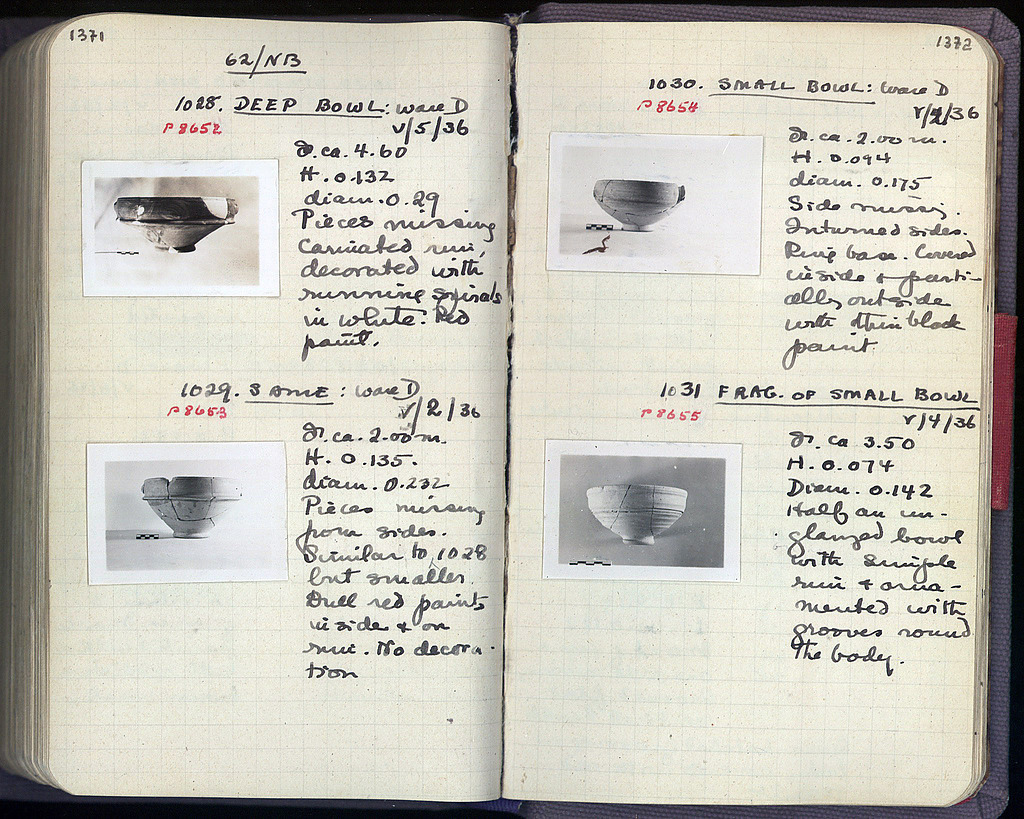 1371
62/NB
1028. DEEP BOWL: Ware D
P 8652
V/5/36
ca. 4.60
H. 0.132
diam. 0.29
Pieces missing
Carinated rim,
decorated with
running spirals
in white. Red
paint.
1029. SAME: Ware D
P 8653
V/2/36
ca. 2.00 m.
H. 0.135.
diam. 0.232
Pieces missing
from sides.
Similar to 1028
but smaller.
Dull red paint
inside & on
rim. No decora-
tion
1372
1030. SMALL BOWL: Ware D
P 8654
V/2/36
ca. 2.00 m.
H. 0.094
diam. 0.175
Side missg.
Inturned sides.
Ring base. Covered
inside & parti-
ally outside
with thin black
paint.
1031 FRAG. OF SMALL BOWL
P 8655
V/4/36
ca 3.50
H. 0.074
Diam. 0.142
Half an un-
glazed bowl
with simple
rim & orna-
mented with
grooves round
the body.